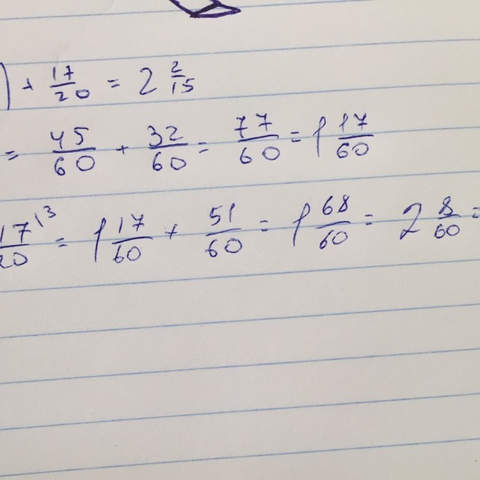 ) + 17/20 = 2 2/15
= 45/60 + 32/60 = 77/60 = 1 17/60
17/20 \3 = 1 17/60 + 51/60 = 1 68/60 = 2 8/60 =